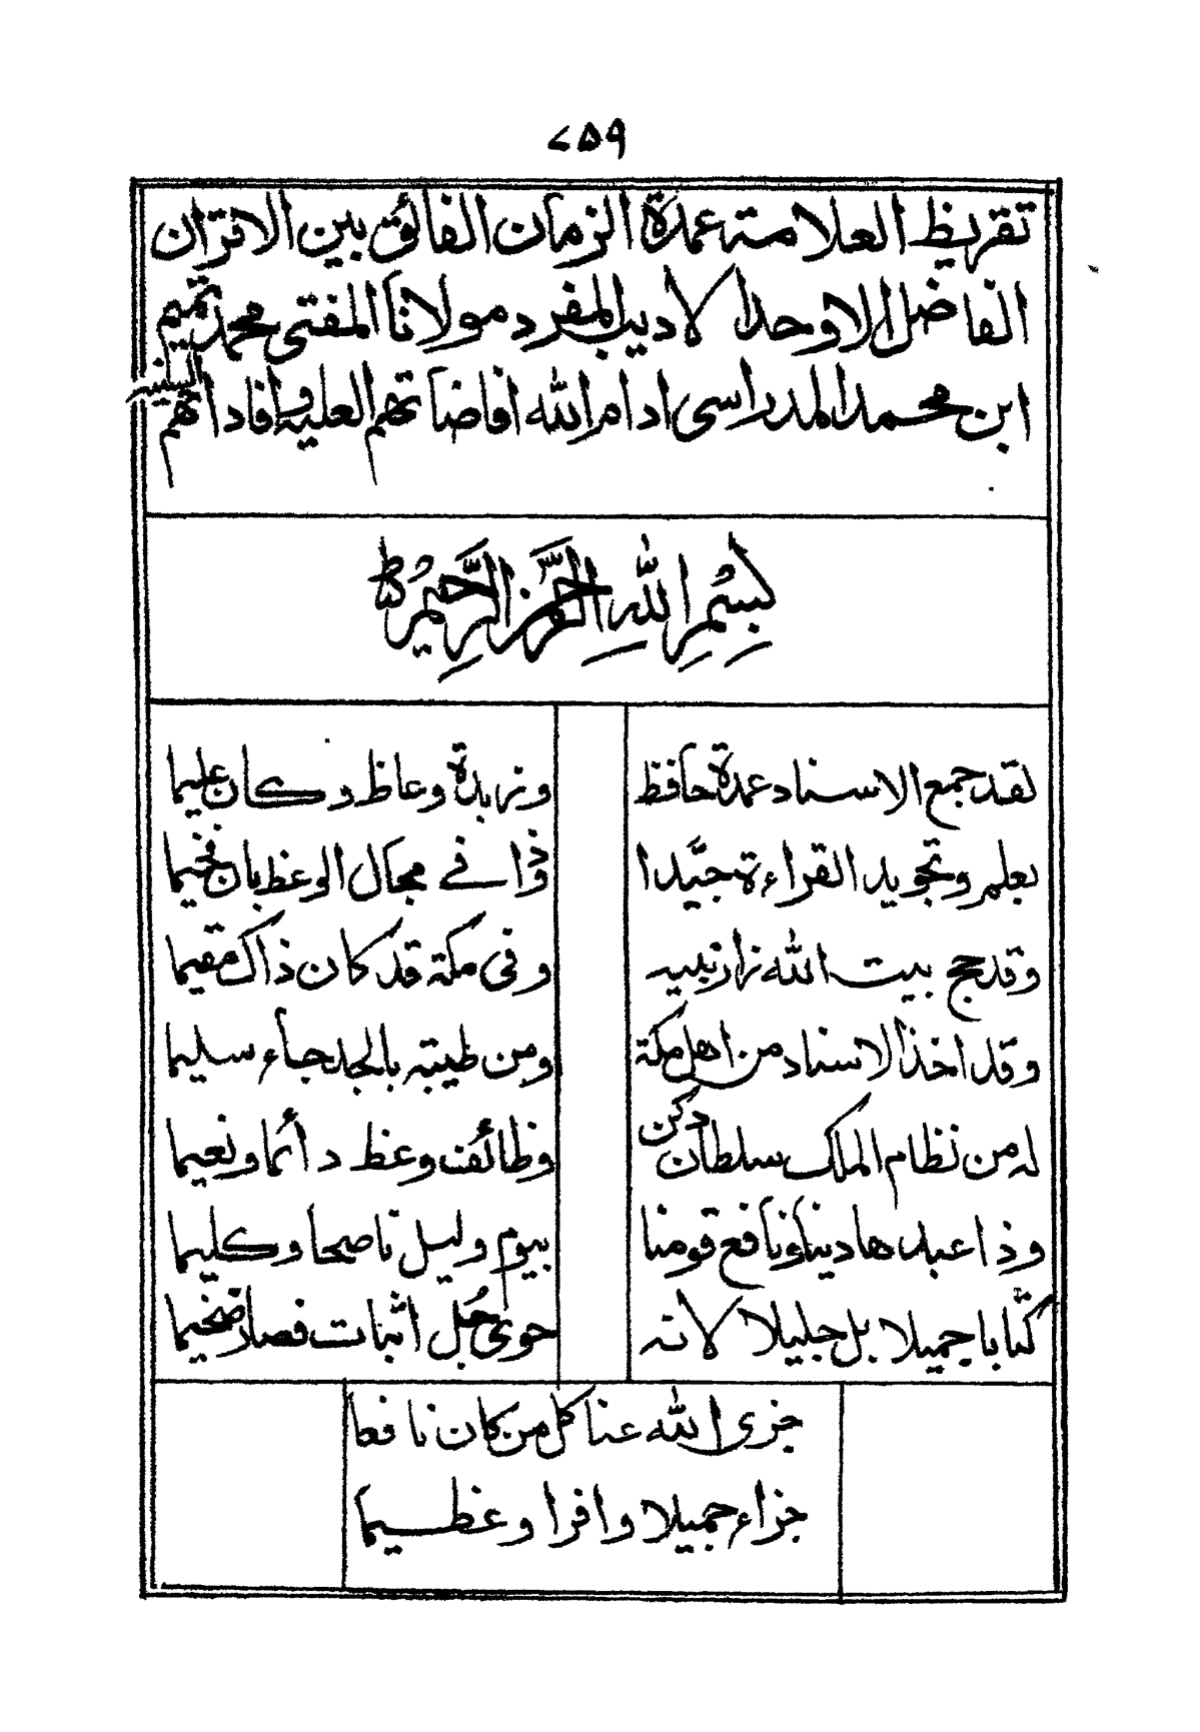 ٧٥٩
تقريظ العلامة عمدة الزمان الفائق بين الاقران
الفاضل الاوحد الاديب المفرد مولانا المفتى محمد تميم
ابن محمد المدراسى ادام الله افاضاتهم العلية وافاداتهم
السنية
بِسْمِ اللهِ الرَّحْمٰنِ الرَّحِيْمِ
لقد جمع الاسناد عمدة حافظ وزبدة وعاظ وكان عليما
بعلم وتجويد القراءة جيّدا وذا في مجال الوعظ بان فخيما
وقد حج بيت الله زار نبيه وفى مكة قد كان ذاك مقيما
وقد اخذ الاسناد من اهل مكة ومن طيبة بالجد جاء سليما
له من نظام الملك سلطان دكن وظائف وعظ دائما ونعيما
وذا عبد هادينا ونافع قومنا بيوم وليل ناصحا وكليما
كتابا جميلا بل جليلا لانه حوى جُل اثبات فصار ضخيما
جزى الله عنا كل من كان نافعا
جزاء جميلا وافرا وعظيما